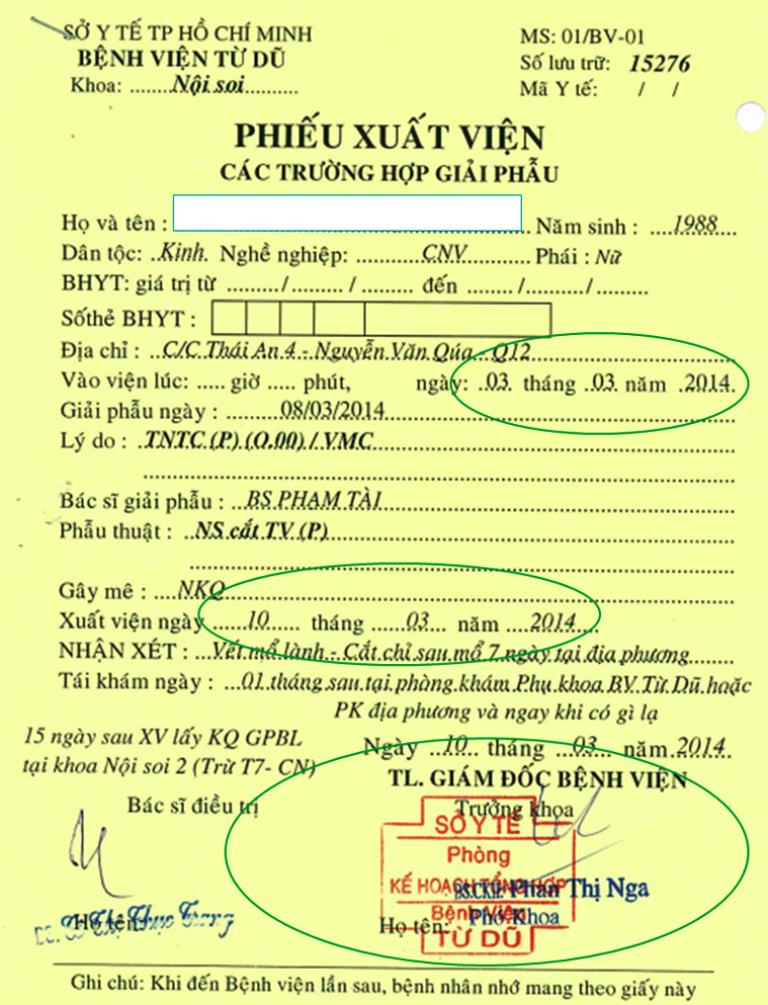 SỞ Y TẾ TP HỒ CHÍ MINH
BỆNH VIỆN TỪ DŨ
Khoa: .......Nội soi..........
MS: 01/BV-01
Số lưu trữ: 15276
Mã Y tế: / /
PHIẾU XUẤT VIỆN
CÁC TRƯỜNG HỢP GIẢI PHẪU
Họ và tên : Năm sinh : ....1988...
Dân tộc: ..Kinh. Nghề nghiệp: ...........CNV........... Phái : Nữ
BHYT: giá trị từ ........./......... / ......... đến ......../........./.........
Sốthẻ BHYT :
Địa chỉ : ..C/C Thái An 4 - Nguyễn Văn Qúa - Q12
Vào viện lúc: ..... giờ ..... phút, ngày: ..03. tháng ..03. năm .2014.
Giải phẫu ngày : .........08/03/2014
Lý do : .TNTC (P) (O.00) / VMC
Bác sĩ giải phẫu : ...BS PHẠM TÀI
Phẫu thuật : ..NS cắt TV (P)
Gây mê : ....NKQ
Xuất viện ngày ......10...... tháng ......03... năm ....2014....
NHẬN XÉT : ...Vết mổ lành - Cắt chỉ sau mổ 7 ngày tại địa phương........
Tái khám ngày : ...01 tháng sau tại phòng khám Phụ khoa BV Từ Dũ hoặc
PK địa phương và ngay khi có gì lạ
15 ngày sau XV lấy KQ GPBL
tại khoa Nội soi 2 (Trừ T7- CN)
Ngày ..10... tháng ...03... năm 2014..
TL. GIÁM ĐỐC BỆNH VIỆN
Bác sĩ điều trị
Trưởng khoa
SỞ Y TẾ
Phòng
KẾ HOẠCH TỔNG HỢP
Bệnh Viện
TỪ DŨ
BS.CKII. Phan Thị Nga
Phó Khoa
Họ tên:
Họ tên:
Ghi chú: Khi đến Bệnh viện lần sau, bệnh nhân nhớ mang theo giấy này